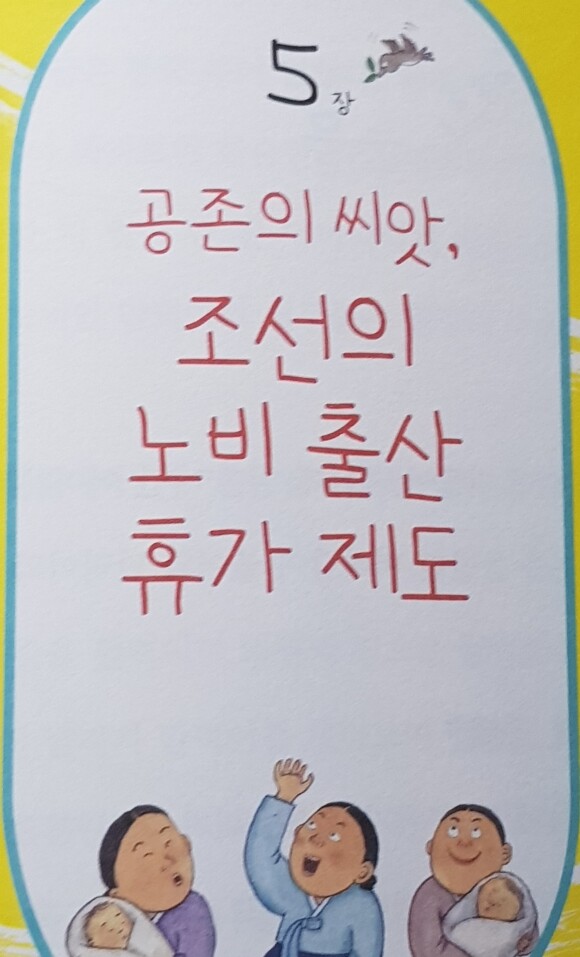 5장
공존의 씨앗,
조선의
노비 출산
휴가 제도